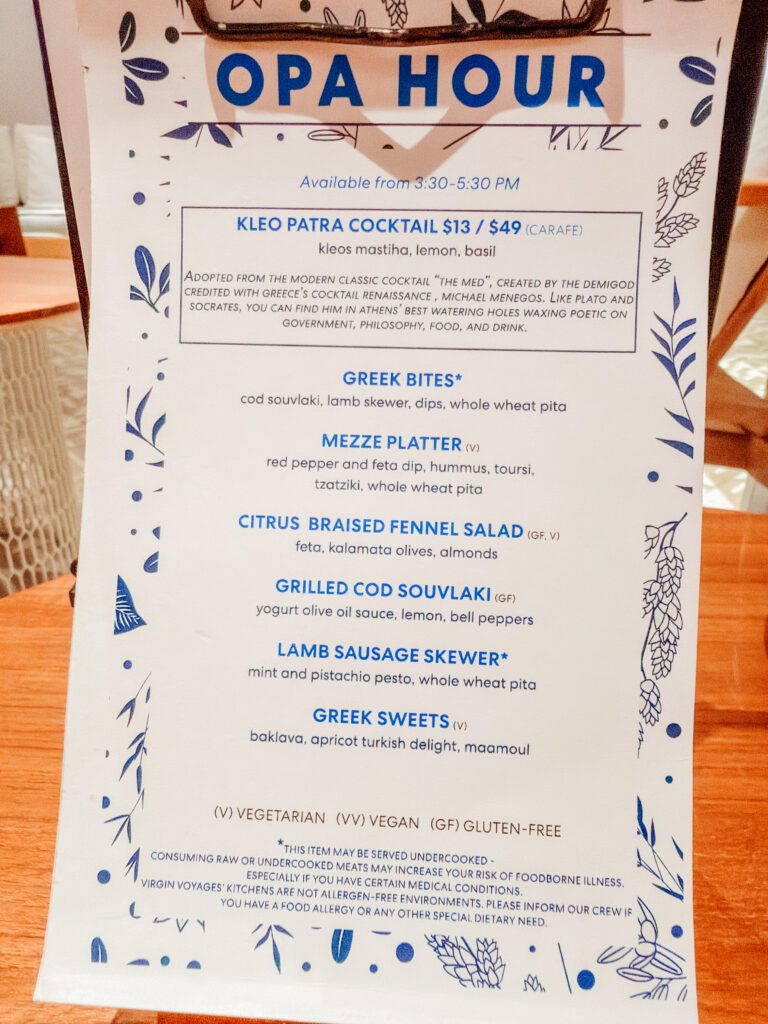 OPA HOUR
Available from 3:30-5:30 PM
KLEO PATRA COCKTAIL $13 / $49 (CARAFE)
kleos mastiha, lemon, basil
ADOPTED FROM THE MODERN CLASSIC COCKTAIL "THE MED", CREATED BY THE DEMIGOD
CREDITED WITH GREECE'S COCKTAIL RENAISSANCE , MICHAEL MENEGOS. LIKE PLATO AND
SOCRATES, YOU CAN FIND HIM IN ATHENS' BEST WATERING HOLES WAXING POETIC ON
GOVERNMENT, PHILOSOPHY, FOOD, AND DRINK.
GREEK BITES*
cod souvlaki, lamb skewer, dips, whole wheat pita
MEZZE PLATTER (V)
red pepper and feta dip, hummus, toursi,
tzatziki, whole wheat pita
CITRUS BRAISED FENNEL SALAD (GF, V)
feta, kalamata olives, almonds
GRILLED COD SOUVLAKI (GF)
yogurt olive oil sauce, lemon, bell peppers
LAMB SAUSAGE SKEWER*
mint and pistachio pesto, whole wheat pita
GREEK SWEETS (V)
baklava, apricot turkish delight, maamoul
(V) VEGETARIAN (VV) VEGAN (GF) GLUTEN-FREE
*THIS ITEM MAY BE SERVED UNDERCOOKED -
CONSUMING RAW OR UNDERCOOKED MEATS MAY INCREASE YOUR RISK OF FOODBORNE ILLNESS.
ESPECIALLY IF YOU HAVE CERTAIN MEDICAL CONDITIONS.
VIRGIN VOYAGES' KITCHENS ARE NOT ALLERGEN-FREE ENVIRONMENTS. PLEASE INFORM OUR CREW IF
YOU HAVE A FOOD ALLERGY OR ANY OTHER SPECIAL DIETARY NEED.